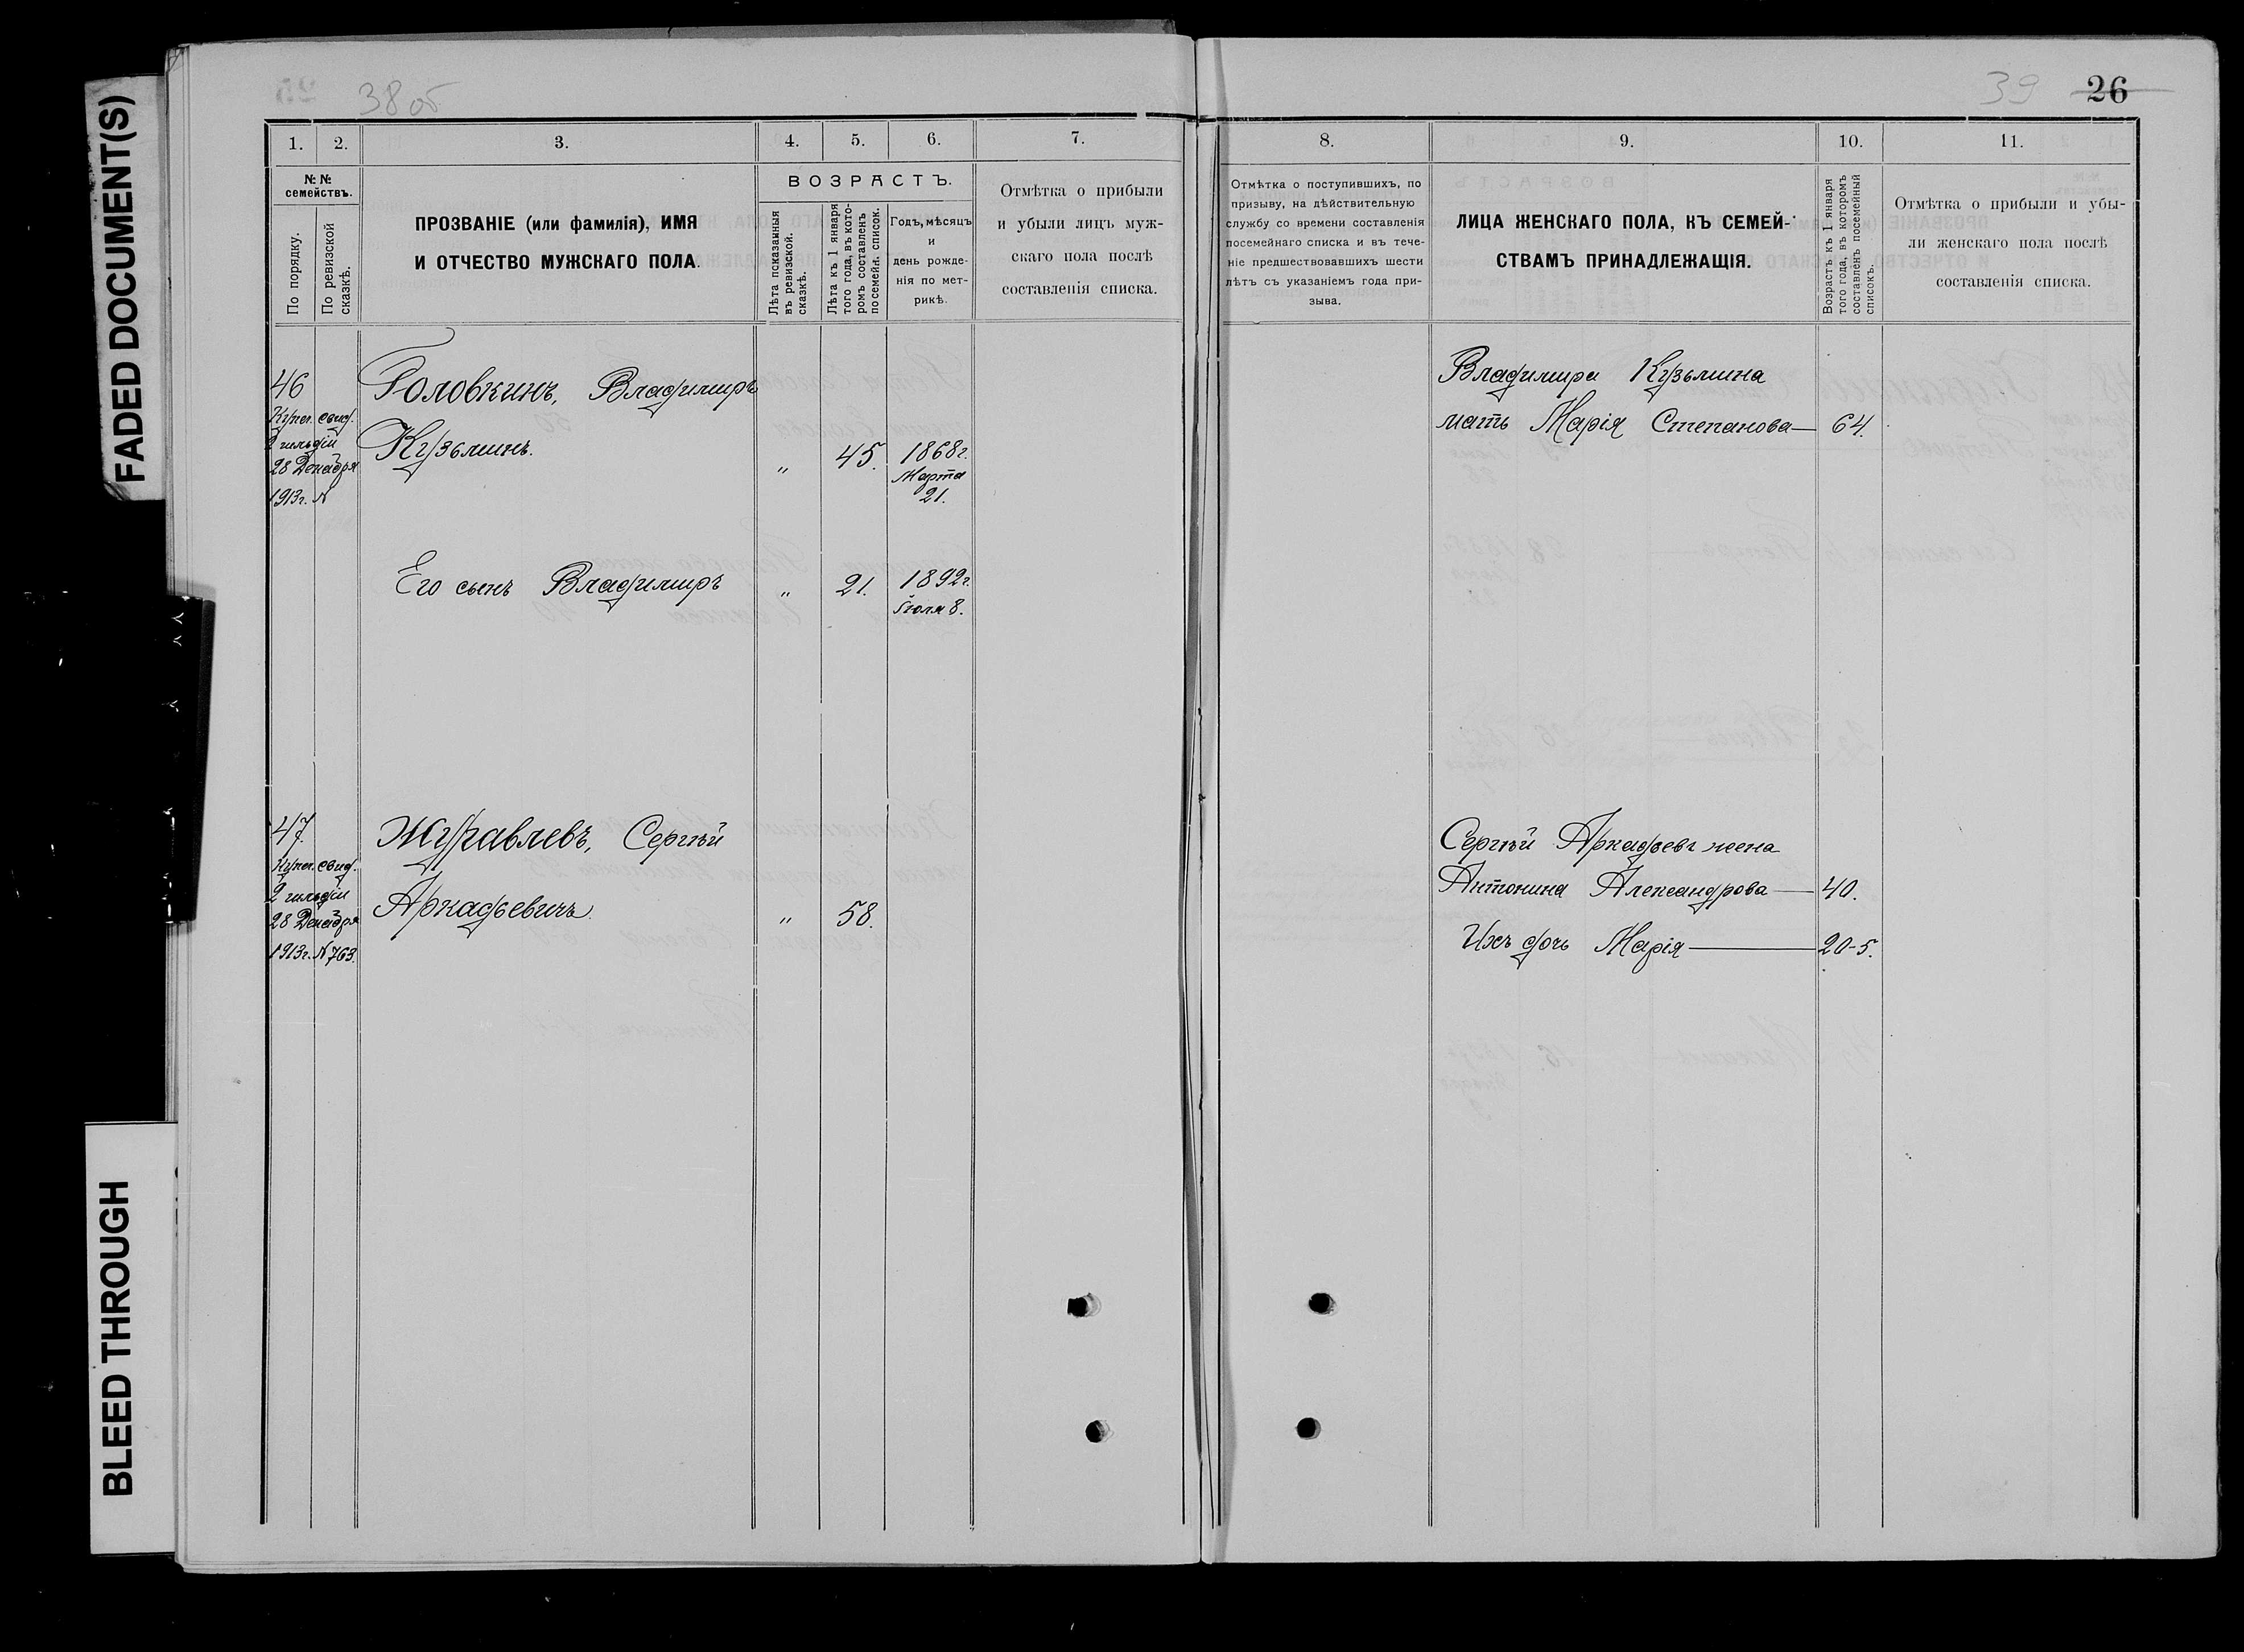 FADED DOCUMENT(S)
BLEED THROUGH
38 об
1.
2.
3.
4.
5.
6.
7.
№ №
семействъ.
По порядку.
По ревизской
сказкѣ.
ПРОЗВАНІЕ (или фамилія), ИМЯ
И ОТЧЕСТВО МУЖСКАГО ПОЛА.
ВОЗРАСТЪ.
Лѣта показанныя
въ ревизской.
сказкѣ.
Лѣта къ 1 января
того года, въ кото-
ромъ составленъ
посемейн. список.
Годъ, мѣсяцъ
и
день рожде-
нія по мет-
рикѣ.
Отмѣтка о прибыли
и убыли лицъ муж-
скаго пола послѣ
составленія списка.
46
Купеч. свид.
2 гильдіи
28 Декабря
1913г. N
Головкинъ, Владимиръ
Кузьминъ.
" 45. 1868г.
Марта
21.
Его сынъ Владимиръ " 21. 1892г.
Іюля 8.
47.
Купеч. свид.
2 гильдіи
28 Декабря
1913г. N 763.
Журавлевъ, Сергѣй
Аркадьевичъ. " 58.
39 26
8.
9.
10.
11.
Отмѣтка о поступившихъ, по
призыву, на дѣйствительную
службу со времени составленія
посемейнаго списка и въ тече-
ніе предшествовавшихъ шести
лѣтъ съ указаніемъ года при-
зыва.
ЛИЦА ЖЕНСКАГО ПОЛА, КЪ СЕМЕЙ-
СТВАМЪ ПРИНАДЛЕЖАЩІЯ.
Возрастъ къ 1 января
того года, въ которомъ
составленъ посемейный
списокъ.
Отмѣтка о прибыли и убы-
ли женскаго пола послѣ
составленія списка.
Владимира Кузьмина
мать Марія Степанова— 64.
Сергѣй Аркадьевъ жена
Антонина Александрова— 40.
Ихъ дочь Марія— 20-5.